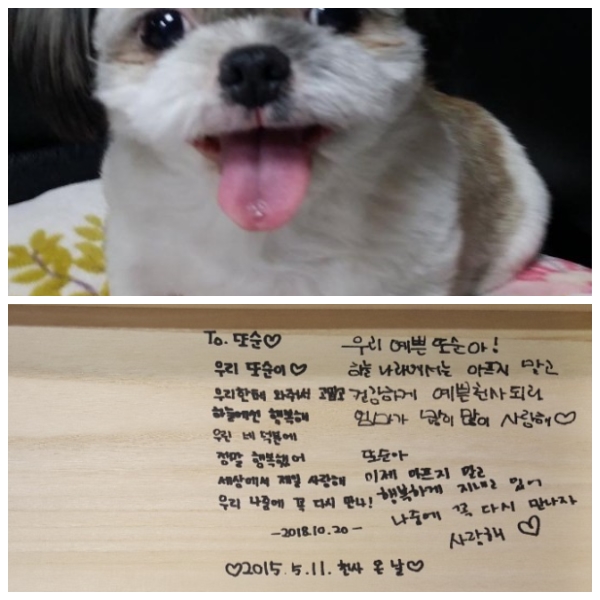 To. 또순♡
우리 또순이♡
우리한테 와주서 고맙고
하늘에선 행복해
우린 네 덕분에
정말 행복했어
세상에서 제일 사랑해
우리 나중에 꼭 다시 만나!
-2018.10.20-
우리 예쁜 또순아!
하늘 나라에서는 아프지 말고
건강하게 예쁜천사 되라
엄마가 많이 많이 사랑해♡
또순아
이제 아프지 말고
행복하게 지내고 있어
나중에 꼭 다시 만나자
사랑해 ♡
♡2015.5.11. 천사 온 날♡